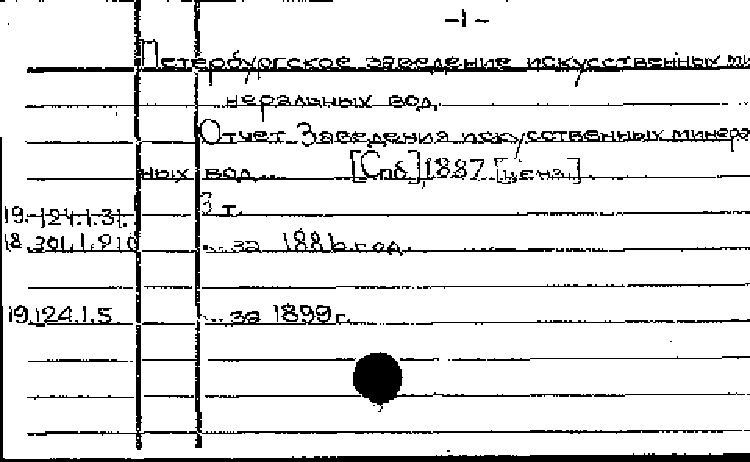 -1-
Петербургское заведение искусственных ми-
неральных вод.
Отчет Заведения искусственных минераль
ных вод. [Спб], 1887 [ценз].
19.124.1.31. 3 т.
18.301.1.910 ... за 1886 год.
19.124.1.5 ... за 1899 г.